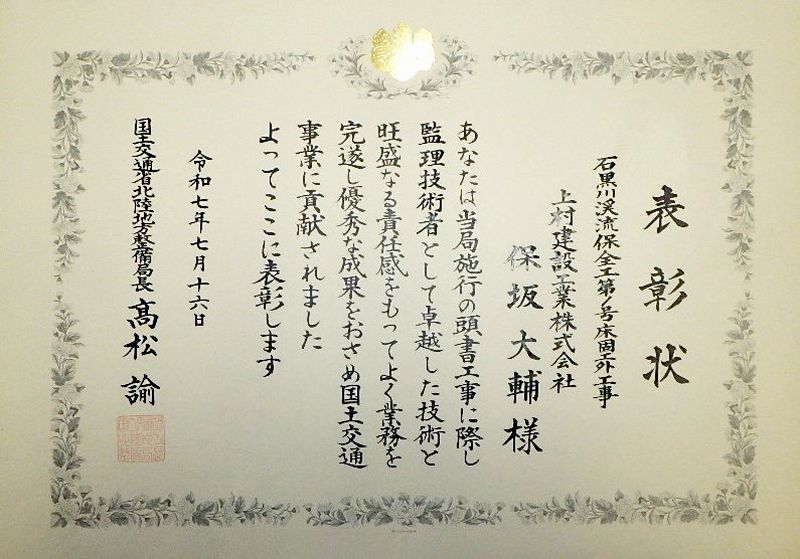 表彰状
石黒川渓流保全工第1号床固工外工事
上村建設工業株式会社
保坂大輔様
あなたは当局施行の頭書工事に際し
監理技術者として卓越した技術と
旺盛なる責任感をもってよく業務を
完遂し優秀な成果をおさめ国土交通
事業に貢献されました
よってここに表彰します
令和七年七月十六日
国土交通省北陸地方整備局長 髙松諭